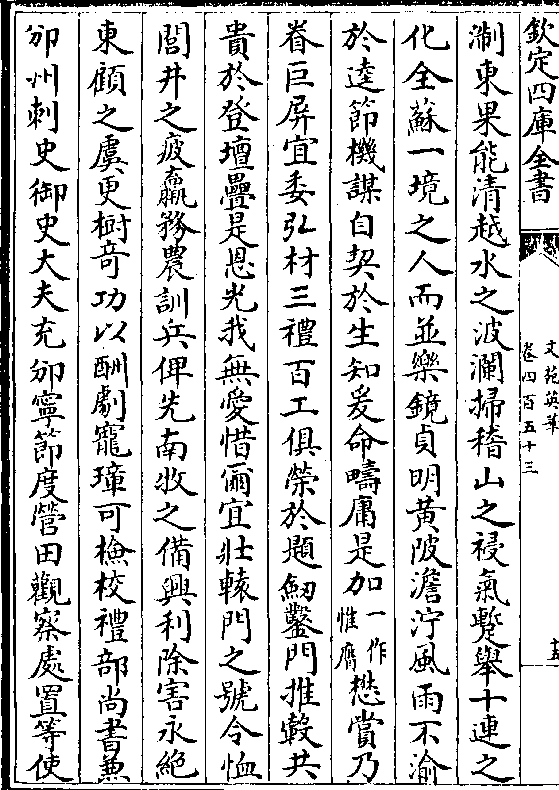 欽定四庫全書
文苑英華
卷四百五十三
十五
淛東果能清越水之波瀾掃稽山之祲氣蹔舉十連之
化全蘇一境之人而並樂鏡貞明黄陂澹泞風雨不渝
於逹節機謀自契於生知爰命疇庸是加一作惟膺懋賞乃
眷巨屏宜委弘材三禮百工俱榮於題劒鑿門推轂共
貴於登壇疊是恩光我無愛惜爾宜壯轅門之號令恤
閭井之疲羸務農訓兵俾先南牧之備興利除害永絶
東顧之虞更樹竒功以酬劇寵璋可檢校禮部尚書兼
邠州刺史御史大夫充邠寧節度營田觀察處置等使